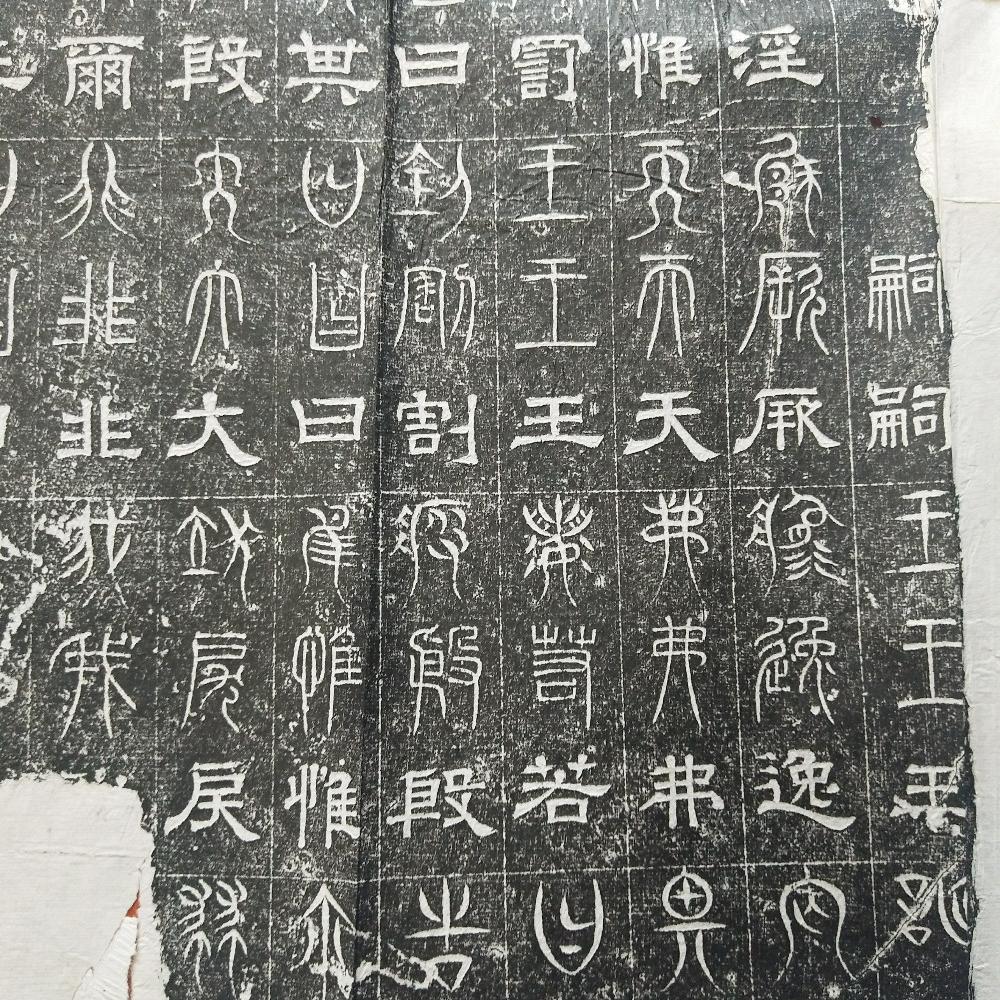 嗣嗣王王王誕
淫厥厥厥逸逸逸罔
惟天天天弗弗弗畀
罰王王王若若若曰
曰割割割殷殷殷告
其曰曰曰惟惟惟爾
殷大大大戾戾戾肆
爾非非非我我